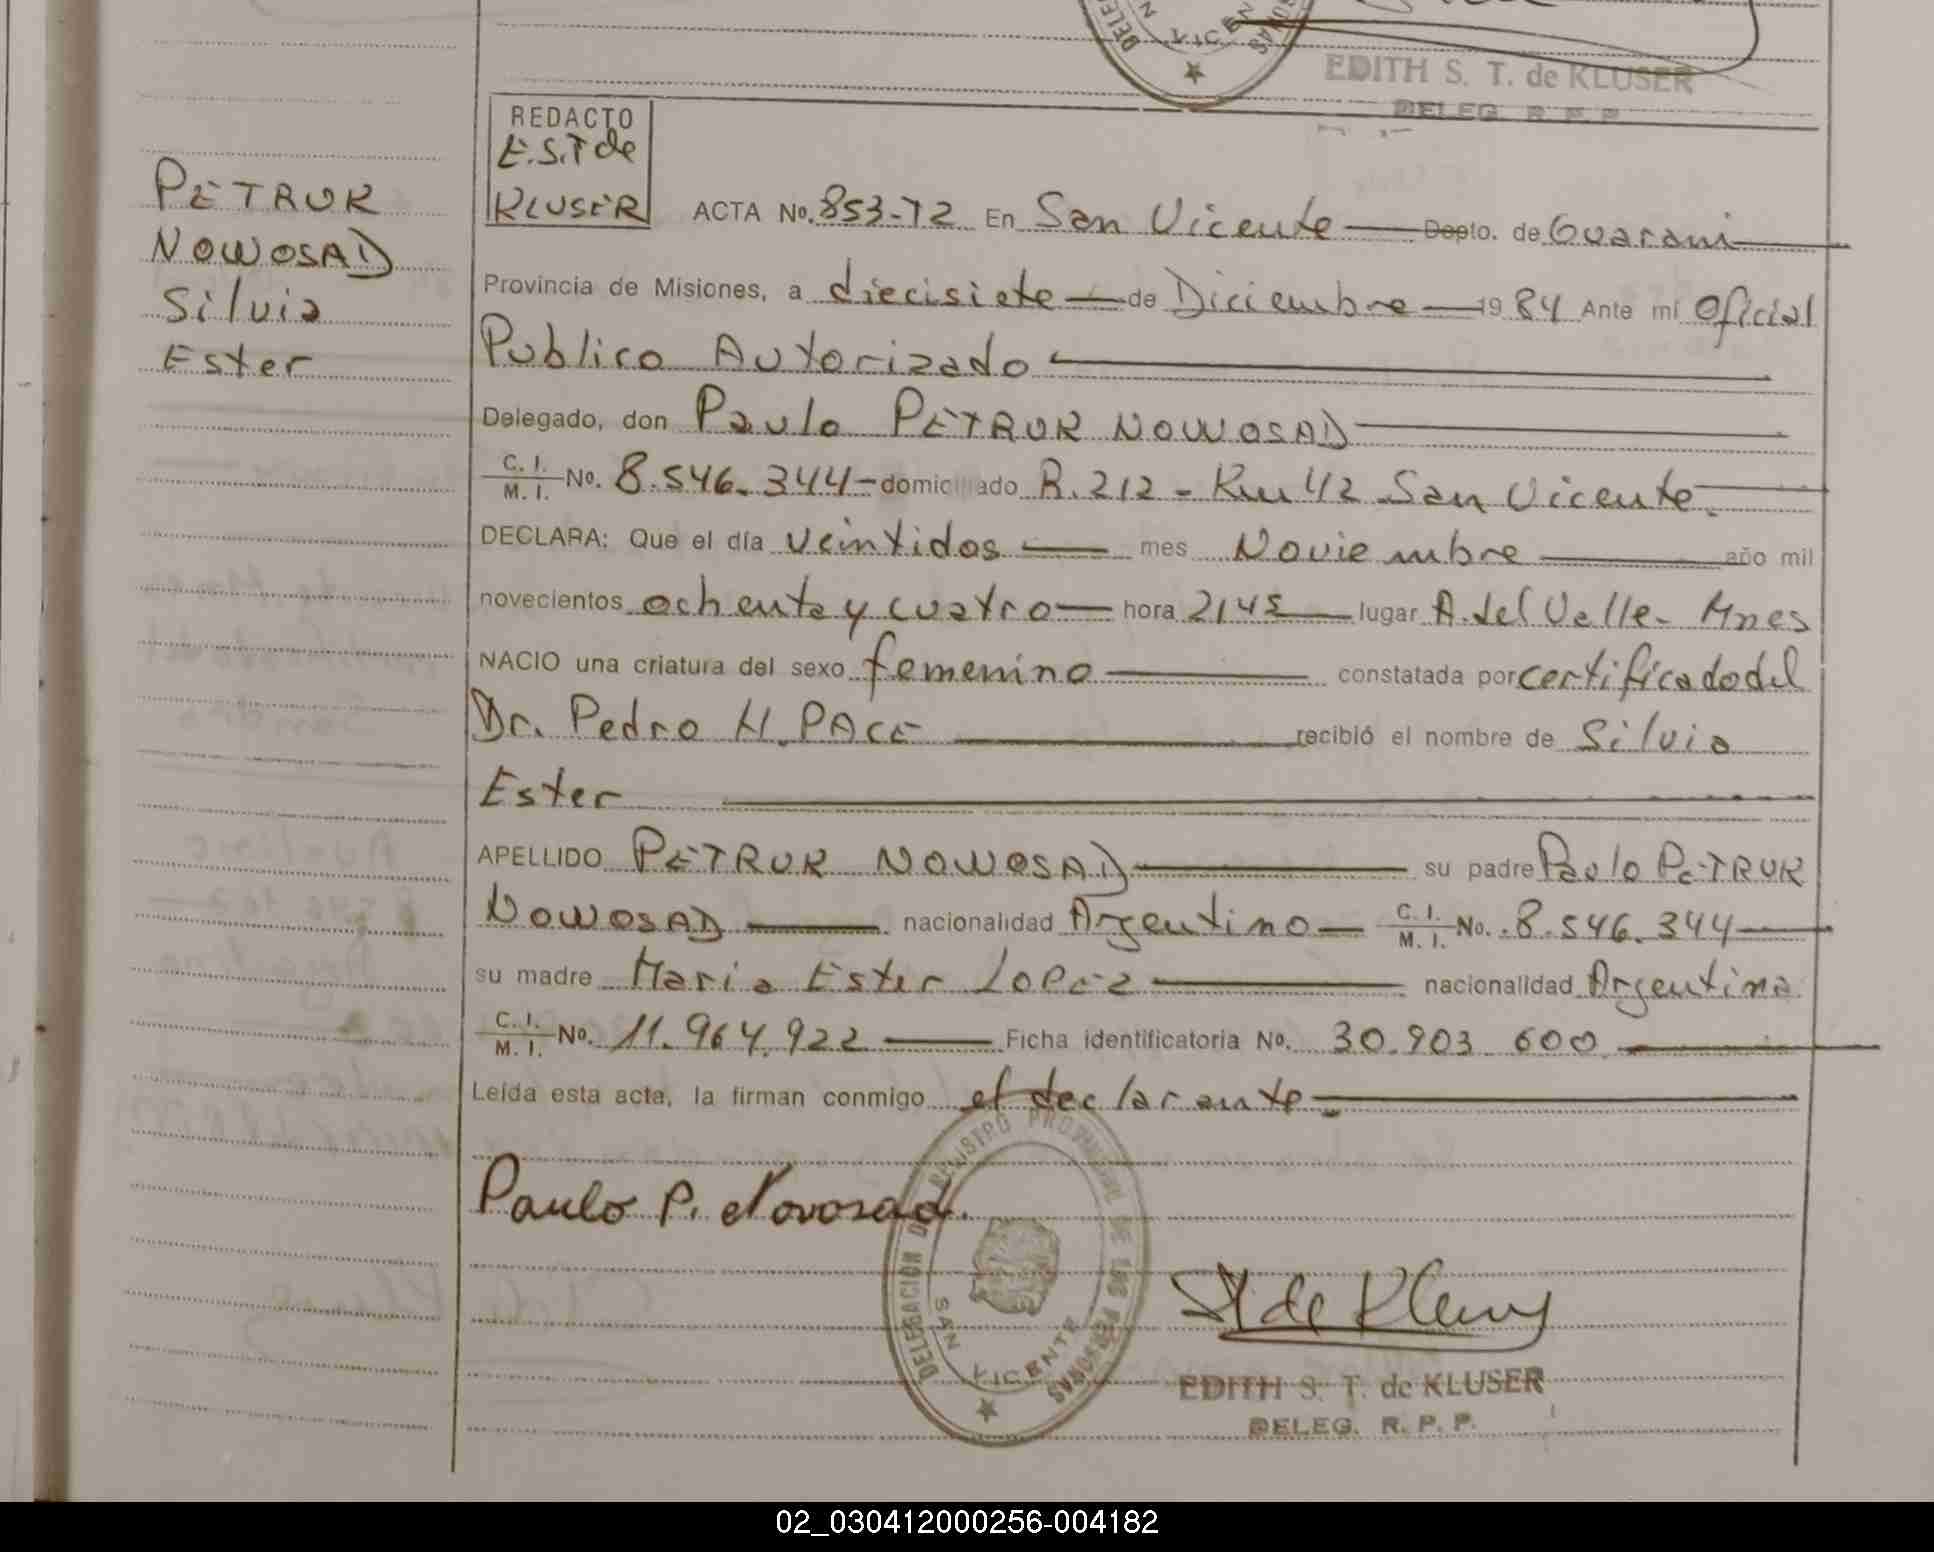 EDITH S. T. de KLUSER
DELEG. R. P. P.
PETRUK
NOWOSAD
Silvia
Ester
REDACTO
E.S.T de
KLUSER
ACTA No. 853-72 En San Vicente Depto. de Guarani
Provincia de Misiones, a diecisiete de Diciembre 1984 Ante mí Oficial
Publico Autorizado
Delegado, don Paulo PETRUK NOWOSAD
C. I. M. I. No. 8.546.344 - domiciliado R.212 - Km 42 San Vicente.
DECLARA: Que el día veintidos mes Noviembre año mil
novecientos ochenta y cuatro hora 2145 lugar A. del Valle - Mnes
NACIO una criatura del sexo femenino constatada por certificado del
Dr. Pedro H. PACE recibió el nombre de Silvia
Ester
APELLIDO PETRUK NOWOSAD su padre Paulo PETRUK
NOWOSAD nacionalidad Argentino C. I. M. I. No. 8.546.344
su madre Maria Ester Lopez nacionalidad Argentina
C. I. M. I. No. 11.964.922 Ficha identificatoria No. 30.903 600
Leída esta acta, la firman conmigo el declarante.
Paulo P. Novosad.
DELEGACION DEL REGISTRO PROVINCIAL DE LAS PERSONAS
SAN VICENTE
EDITH S. T. de KLUSER
DELEG. R. P. P.
02_030412000256-004182